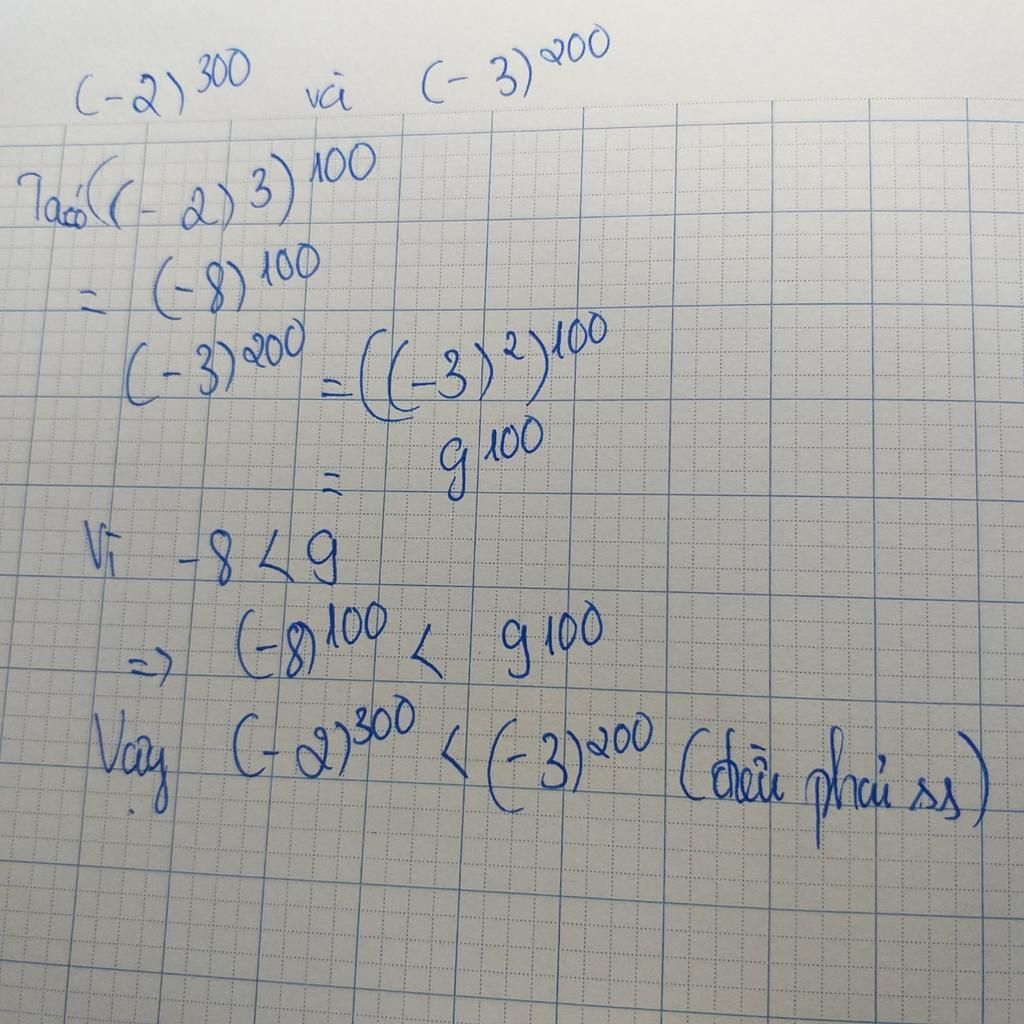 (-2)^300 và (-3)^200
Ta có ((-2)^3)^100
= (-8)^100
(-3)^200 = ((-3)^2)^100
= 9^100
Vì -8 < 9
=> (-8)^100 < 9^100
Vậy (-2)^300 < (-3)^200 (điều phải ss)